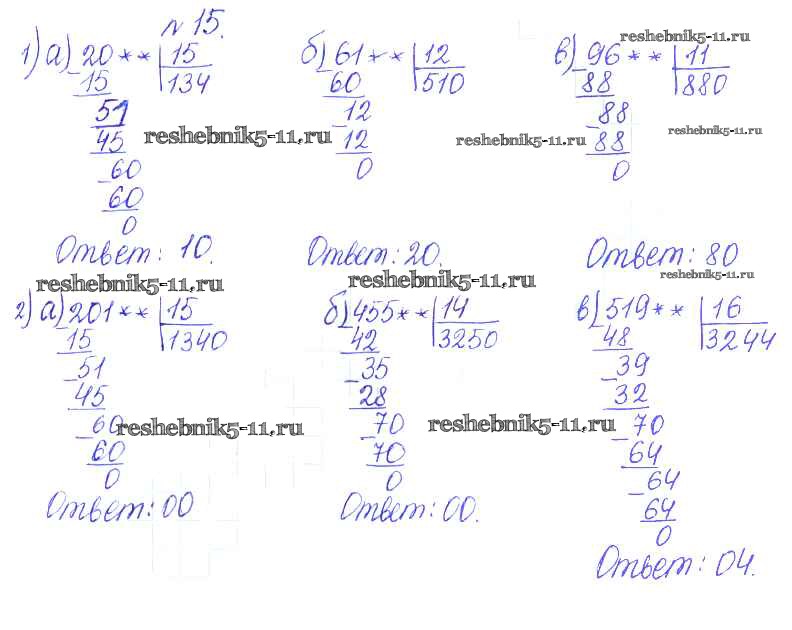 № 15.
1) а) 20** | 15
15 | 134
51
45
60
60
0
Ответ: 10.
б) 61** | 12
60 | 510
12
12
0
Ответ: 20.
в) 96** | 11
88 | 880
88
88
0
Ответ: 80
2) а) 201** | 15
15 | 1340
51
45
60
60
0
Ответ: 00
б) 455** | 14
42 | 3250
35
28
70
70
0
Ответ: 00.
в) 519** | 16
48 | 3244
39
32
70
64
64
64
0
Ответ: 04.
reshebnik5-11.ru
reshebnik5-11.ru
reshebnik5-11.ru
reshebnik5-11.ru
reshebnik5-11.ru
reshebnik5-11.ru
reshebnik5-11.ru
reshebnik5-11.ru
reshebnik5-11.ru